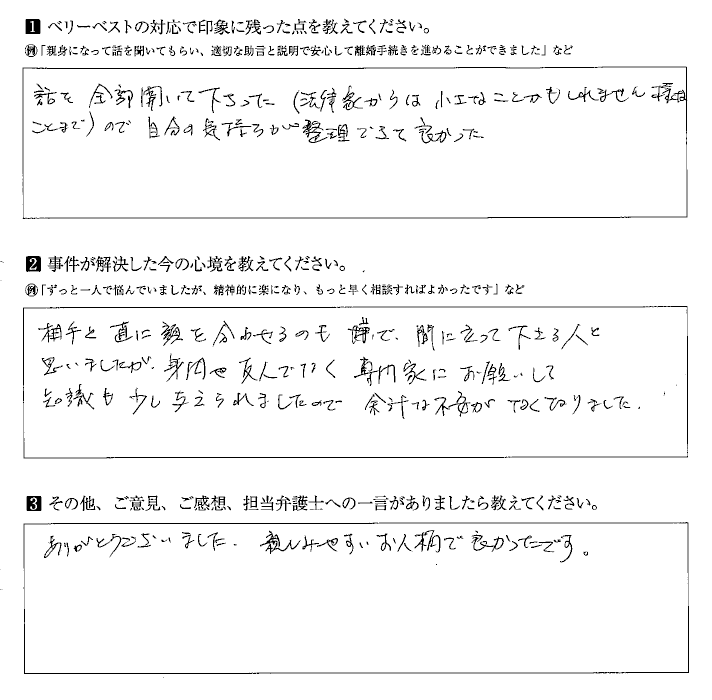 1 ベリーベストの対応で印象に残った点を教えてください。
例「親身になって話を聞いてもらい、適切な助言と説明で安心して離婚手続きを進めることができました」など
話を全部聞いて下さった(法律家からは小さなことかもしれません様な
ことまで)ので自分の気持ちが整理できて良かった
2 事件が解決した今の心境を教えてください。
例「ずっと一人で悩んでいましたが、精神的に楽になり、もっと早く相談すればよかったです」など
相手と直に顔を合わせるのも嫌で、間に立って下さる人と
思いましたが、身内や友人でなく専門家にお願いして
知識も少し与えられましたので余計な不安がなくなりました.
3 その他、ご意見、ご感想、担当弁護士への一言がありましたら教えてください。
ありがとうございました. 親しみやすいお人柄で良かったです。